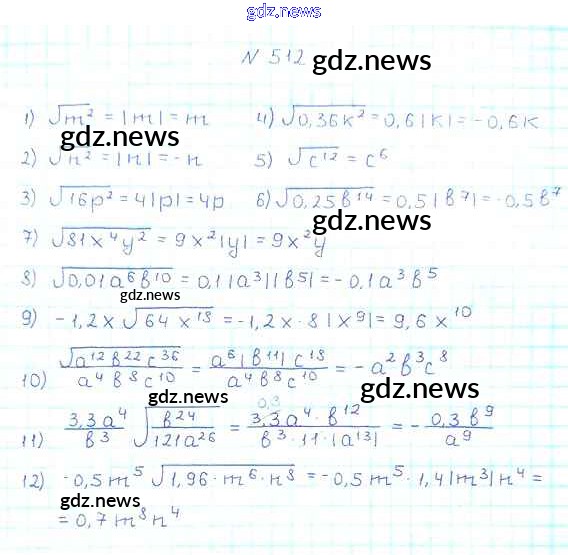 gdz.news
N 512 gdz.news
1) √m² = |m| = m
4) √0,36k² = 0,6|k| = -0,6k
gdz.news gdz.news
2) √n² = |n| = -n
5) √c¹² = c⁶
3) √16p² = 4|p| = 4p
6) √0,25b¹⁴ = 0,5|b⁷| = -0,5b⁷
gdz.news
7) √81x⁴y² = 9x²|y| = 9x²y
8) √0,01a⁶b¹⁰ = 0,1|a³||b⁵| = -0,1a³b⁵
gdz.news gdz.news
9) -1,2x √64x¹⁸ = -1,2x · 8|x⁹| = 9,6x¹⁰
10) √a¹²b²²c³⁶ / a⁴b⁸c¹⁰ = a⁶|b¹¹|c¹⁸ / a⁴b⁸c¹⁰ = -a²b³c⁸
gdz.news gdz.news
0,3
11) 3,3a⁴ / b³ √b²⁴ / 121a²⁶ = 3,3a⁴ · b¹² / b³ · 11 · |a¹³| = - 0,3b⁹ / a⁹
gdz.news
12) -0,5m⁵ √1,96 · m⁶ · n⁸ = -0,5m⁵ · 1,4|m³|n⁴ =
gdz.news gdz.news
= 0,7m⁸n⁴
gdz.news